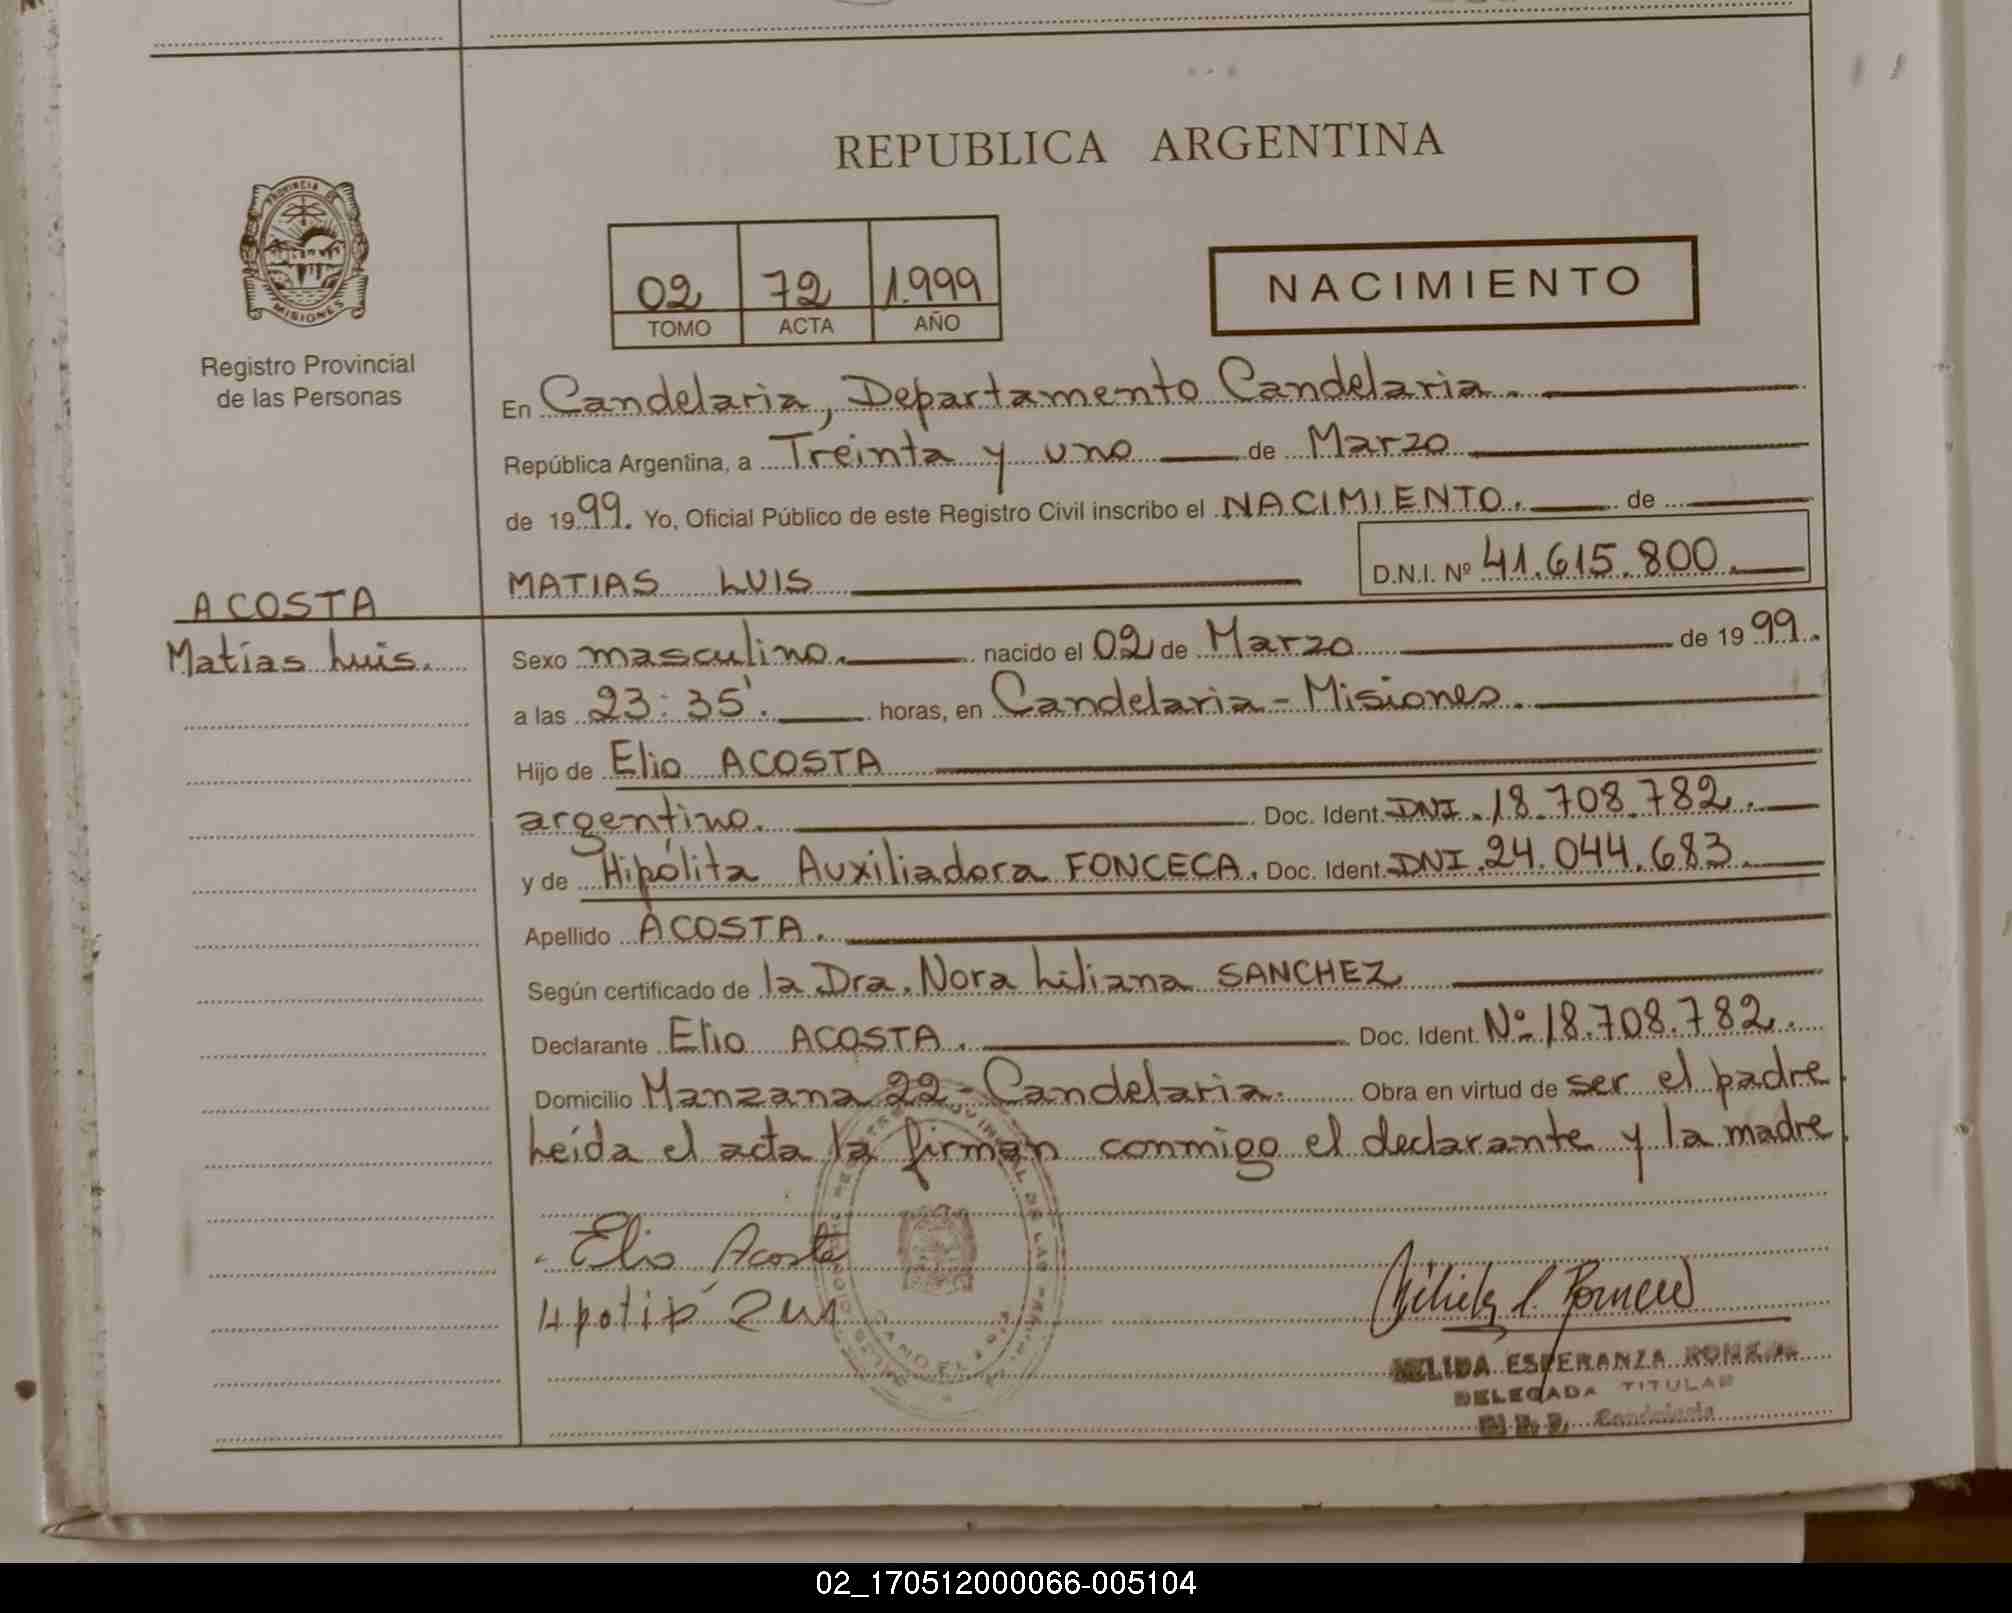 REPUBLICA ARGENTINA
PROVINCIA DE MISIONES
Registro Provincial
de las Personas
02 72 1.999
TOMO ACTA AÑO
NACIMIENTO
En Candelaria, Departamento Candelaria.
República Argentina, a Treinta y uno de Marzo
de 1999. Yo, Oficial Público de este Registro Civil inscribo el NACIMIENTO. de
MATIAS LUIS D.N.I. Nº 41.615.800.
ACOSTA
Matías Luis.
Sexo masculino. nacido el 02 de Marzo de 1999.
a las 23:35'. horas, en Candelaria-Misiones.
Hijo de Elio ACOSTA
argentino. Doc. Ident. DNI. 18.708.782.
y de Hipólita Auxiliadora FONCECA. Doc. Ident. DNI. 24.044.683.
Apellido ACOSTA.
Según certificado de la Dra. Nora Liliana SANCHEZ
Declarante Elio ACOSTA. Doc. Ident. Nº 18.708.782.
Domicilio Manzana 22-Candelaria. Obra en virtud de ser el padre.
Leída el acta la firman conmigo el declarante y la madre.
Elio Acosta
NELIDA ESPERANZA ROMERO
DELEGADA TITULAR
Candelaria
02_170512000066-005104